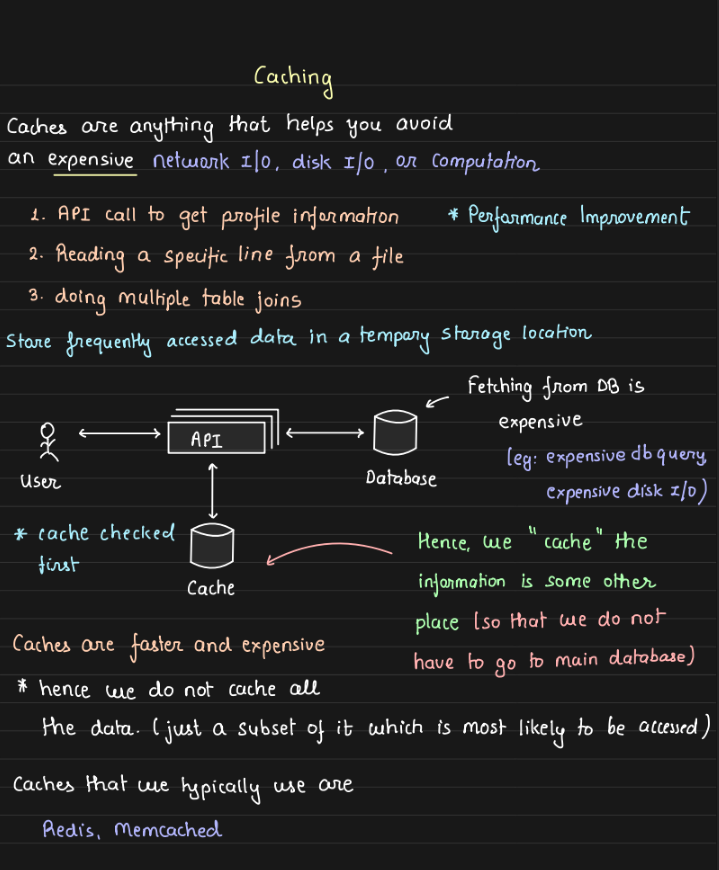 Caching
Caches are anything that helps you avoid
an expensive network I/O, disk I/O, or computation
1. API call to get profile information
* Performance Improvement
2. Reading a specific line from a file
3. doing multiple table joins
Store frequently accessed data in a tempary storage location
Fetching from DB is
expensive
(eg: expensive db query,
expensive disk I/O)
User
API
Database
* cache checked
first
Cache
Hence, we "cache" the
information is some other
place (so that we do not
have to go to main database)
Caches are faster and expensive
* hence we do not cache all
the data. (just a subset of it which is most likely to be accessed)
Caches that we typically use are
Redis, Memcached